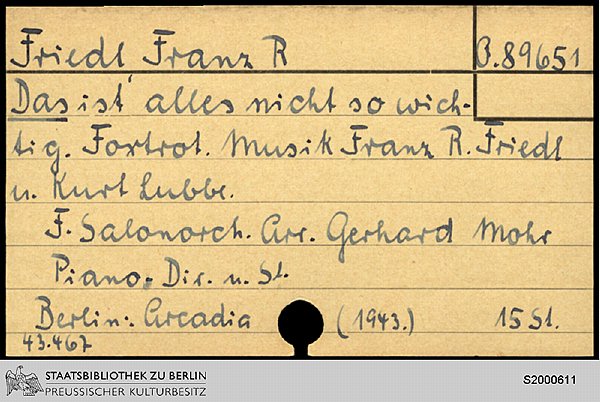 Friedl Franz R
B.89651
Das ist alles nicht so wich-
tig. Foxtrot. Musik Franz R. Friedl
u. Kurt Lubbe.
F. Salonorch. Arr. Gerhard Mohr
Piano-Dir. u. St.
Berlin: Arcadia (1943.) 15 St.
43.467
STAATSBIBLIOTHEK ZU BERLIN
PREUSSISCHER KULTURBESITZ
S2000611